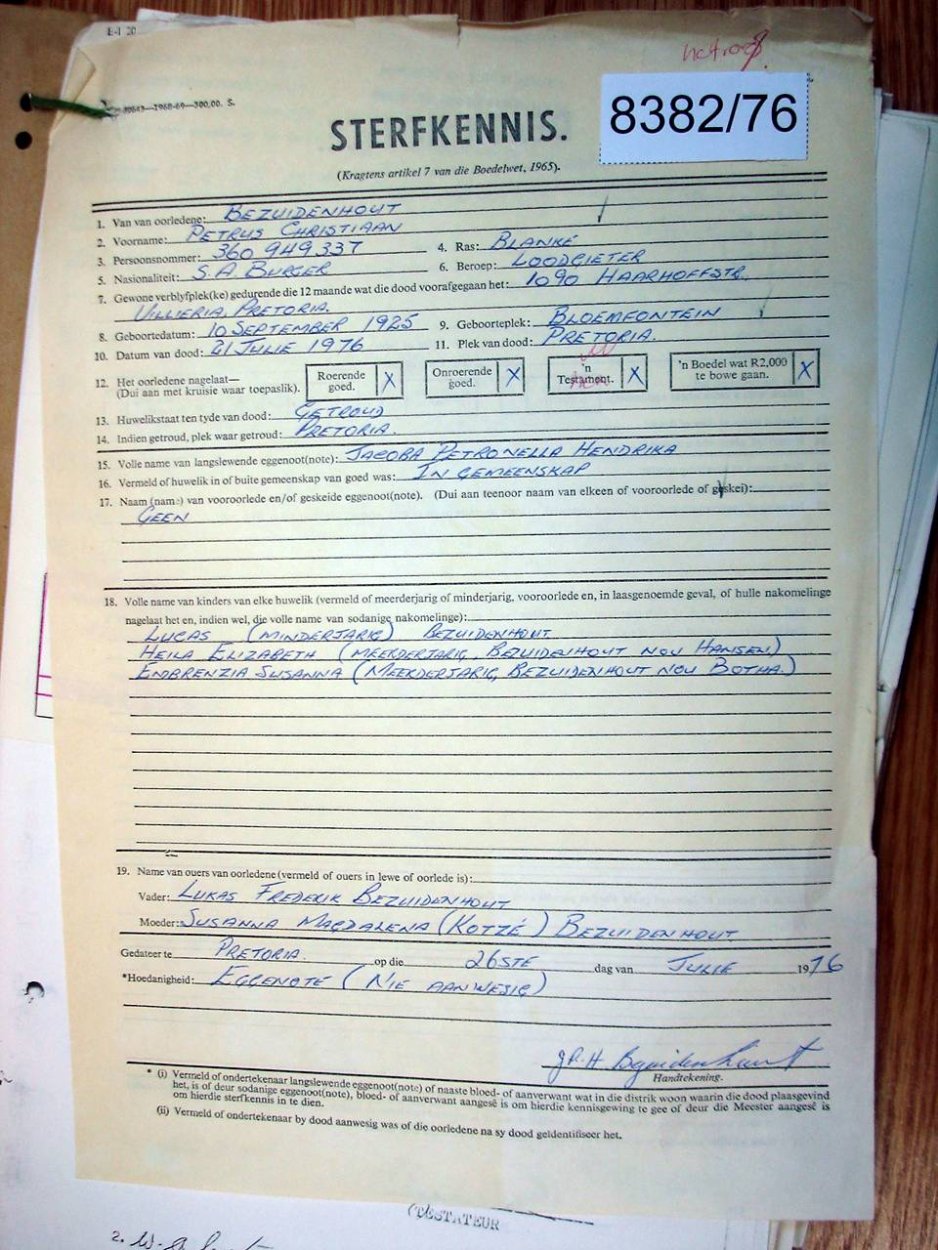 E-1 20
8382/76
STERFKENNIS.
(Kragtens artikel 7 van die Boedelwet, 1965).
1. Van van oorledene: BEZUIDENHOUT
2. Voorname: PETRUS CHRISTIAAN
3. Persoonsnommer: 360 949 337 4. Ras: BLANKE
5. Nasionaliteit: S.A BURGER 6. Beroep: LOODGIETER
7. Gewone verblyfplek(ke) gedurende die 12 maande wat die dood voorafgegaan het: 1090 HAARHOFFSTR.
VILLIERIA, PRETORIA.
8. Geboortedatum: 10 SEPTEMBER 1925 9. Geboorteplek: BLOEMFONTEIN
10. Datum van dood: 21 JULIE 1976 11. Plek van dood: PRETORIA.
12. Het oorledene nagelaat— (Dui aan met kruisie waar toepaslik). Roerende goed. X Onroerende goed. X 'n Testament. X 'n Boedel wat R2,000 te bowe gaan. X
13. Huwelikstaat ten tyde van dood: GETROUD
14. Indien getroud, plek waar getroud: PRETORIA.
15. Volle name van langslewende eggenoot(note): JACOBA PETRONELLA HENDRIKA
16. Vermeld of huwelik in of buite gemeenskap van goed was: IN GEMEENSKAP
17. Naam (name) van vooroorlede en/of geskeide eggenoot(note). (Dui aan teenoor naam van elkeen of vooroorlede of geskei):
GEEN
18. Volle name van kinders van elke huwelik (vermeld of meerderjarig of minderjarig, vooroorlede en, in laasgenoemde geval, of hulle nakomelinge
nagelaat het en, indien wel, die volle name van sodanige nakomelinge):
LUCAS (MINDERJARIG) BEZUIDENHOUT
HEILA ELIZABETH (MEERDERJARIG, BEZUIDENHOUT NOU HANSEN)
EMBRENZIA SUSANNA (MEERDERJARIG, BEZUIDENHOUT NOU BOTHA.)
19. Name van ouers van oorledene (vermeld of ouers in lewe of oorlede is):
Vader: LUKAS FREDERIK BEZUIDENHOUT
Moeder: SUSANNA MAGDALENA (KOTZÉ) BEZUIDENHOUT
Gedateer te PRETORIA. op die 26STE dag van JULIE 1976
*Hoedanigheid: EGGENOTE (NIE AANWESIG)
J.P.H Bezuidenhout
Handtekening.
* (i) Vermeld of ondertekenaar langslewende eggenoot(note) of naaste bloed- of aanverwant wat in die distrik woon waarin die dood plaasgevind
het, is of deur sodanige eggenoot(note), bloed- of aanverwant aangesê is om hierdie kennisgewing te gee of deur die Meester aangesê is
om hierdie sterfkennis in te dien.
(ii) Vermeld of ondertekenaar by dood aanwesig was of die oorledene na sy dood geïdentifiseer het.
(TESTATEUR
2.